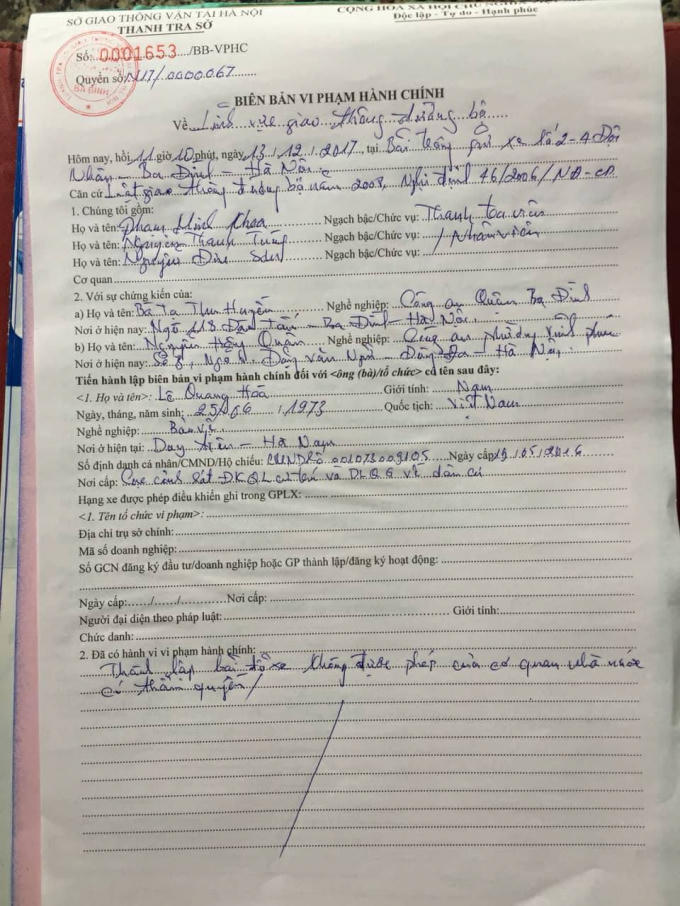 SỞ GIAO THÔNG VẬN TẢI HÀ NỘI
THANH TRA SỞ
CỘNG HÒA XÃ HỘI CHỦ NGHĨA
Độc lập - Tự do - Hạnh phúc
Số: 0001653 /BB-VPHC
Quyển số: /0000067
BA ĐÌNH
BIÊN BẢN VI PHẠM HÀNH CHÍNH
Về Lĩnh vực giao thông đường bộ
Hôm nay, hồi 11 giờ 10 phút, ngày 13/12/2017, tại Bãi trông giữ xe số 2-4 Đội
Nhân - Ba Đình - Hà Nội
Căn cứ Luật giao thông đường bộ năm 2008, Nghị định 46/2006/NĐ-CP
1. Chúng tôi gồm:
Họ và tên: Phạm Minh Khoa Ngạch bậc/Chức vụ: Thanh tra viên
Họ và tên: Nguyễn Thanh Tùng Ngạch bậc/Chức vụ: / Nhân viên
Họ và tên: Nguyễn Đức Ngạch bậc/Chức vụ: /
Cơ quan
2. Với sự chứng kiến của:
a) Họ và tên: Bà Tạ Thu Huyền Nghề nghiệp: Công an Quận Ba Đình
Nơi ở hiện nay: Ngõ 118 Đào Tấn - Ba Đình - Hà Nội
b) Họ và tên: Nguyễn Hồng Quân Nghề nghiệp: Công an phường Vĩnh Phúc
Nơi ở hiện nay: Số 8, Ngõ Đặng Văn Ngữ - Đống Đa - Hà Nội
Tiến hành lập biên bản vi phạm hành chính đối với <ông (bà)/tổ chức> có tên sau đây:
<1. Họ và tên>: Lê Quang Hòa Giới tính: Nam
Ngày, tháng, năm sinh: 25/06/1973 Quốc tịch: Việt Nam
Nghề nghiệp: Bảo vệ
Nơi ở hiện tại: Duy Tiên - Hà Nam
Số định danh cá nhân/CMND/Hộ chiếu: 001073009105 Ngày cấp: 19/05/2016
Nơi cấp: Cục cảnh sát ĐKQL cư trú và DLQG về dân cư
Hạng xe được phép điều khiển ghi trong GPLX:
<1. Tên tổ chức vi phạm>:
Địa chỉ trụ sở chính:
Mã số doanh nghiệp:
Số GCN đăng ký đầu tư/doanh nghiệp hoặc GP thành lập/đăng ký hoạt động:
Ngày cấp:....../....../...... Nơi cấp:
Người đại diện theo pháp luật: Giới tính:
Chức danh:
2. Đã có hành vi vi phạm hành chính:
Thành lập bãi đỗ xe không được phép của cơ quan nhà nước
có thẩm quyền/